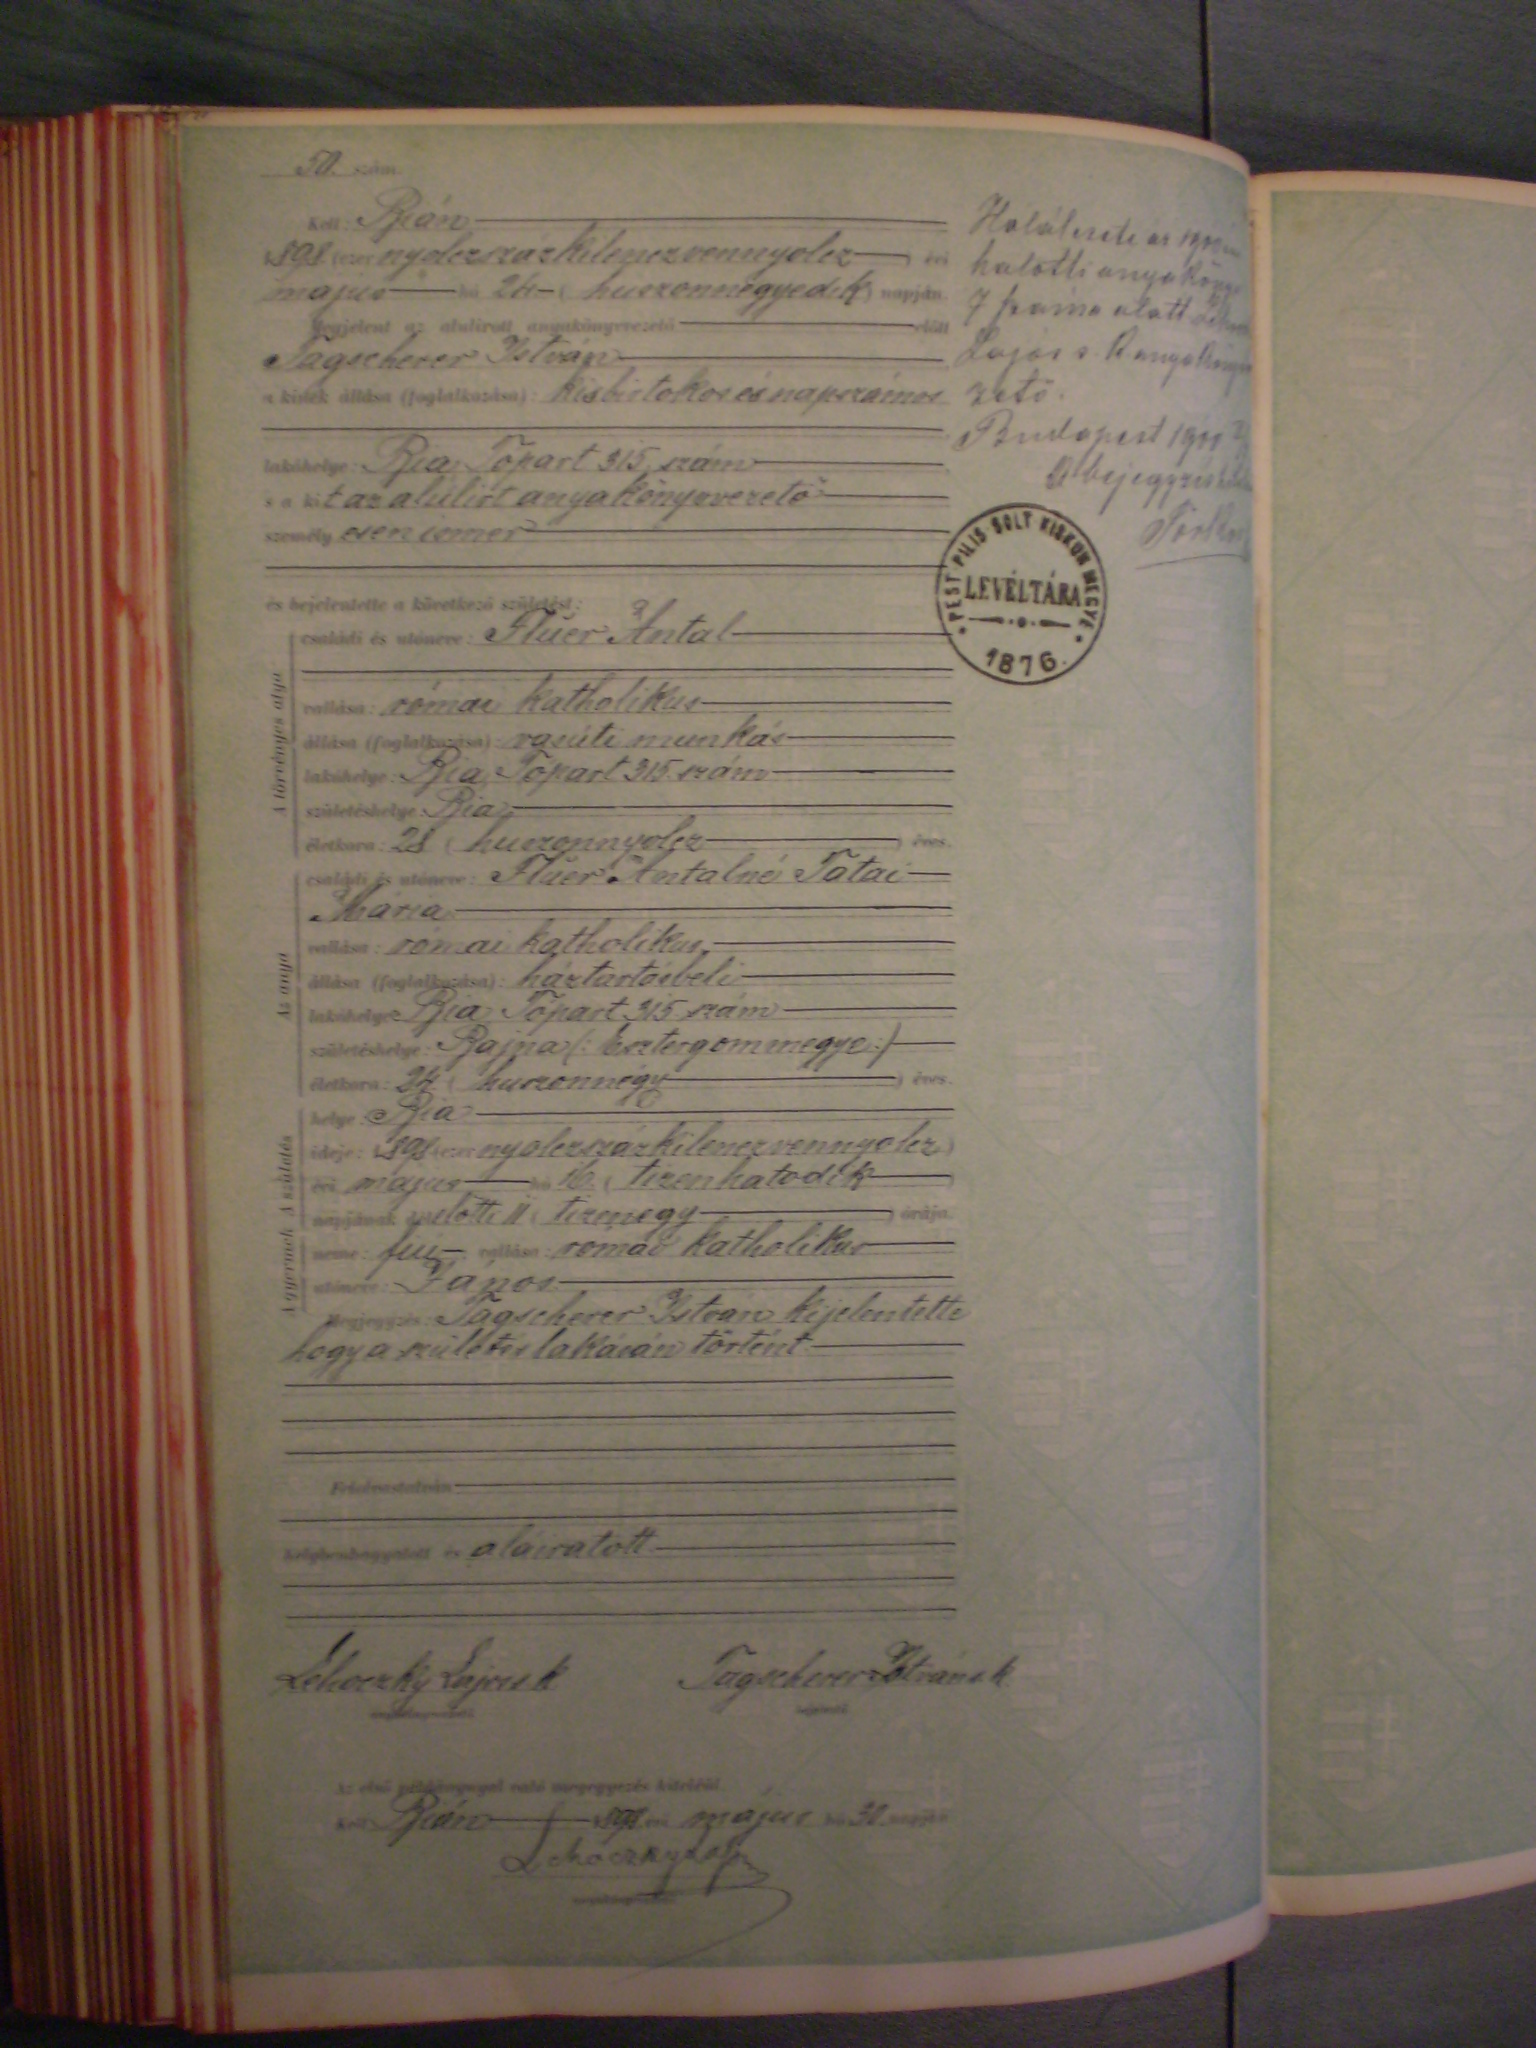 50. szám.
Kelt: Bián
1898 (ezer nyolczszázkilenczvennyolcz) évi
május hó 24 (huszonnégyedik) napján.
Megjelent az alulirott anyakönyvvezető előtt
Tagscherer István
a kinek állása (foglalkozása): kisbirtokos és napszámos
lakóhelye: Bia Tópart 315 szám
s a kit az alulirt anyakönyvvezető
személyesen ismer
és bejelentette a következő születést:
A törvényes atya
családi és utóneve: Flúer Antal
vallása: római katholikus
állása (foglalkozása): vasúti munkás
lakóhelye: Bia Tópart 315 szám
születéshelye: Bia
életkora: 28 (huszonnyolcz) éves.
Az anya
családi és utóneve: Flúer Antalné Tatai
Mária
vallása: római katholikus
állása (foglalkozása): háztartásbeli
lakóhelye: Bia Tópart 315 szám
születéshelye: Bajna (: Esztergommegye:)
életkora: 24 (huszonnégy) éves.
A születés
helye: Bia
ideje: 1898 (ezer nyolczszázkilenczvennyolcz)
évi május hó 16. (tizenhatodik)
napjának délelőtti 11 (tizenegy) órája.
A gyermek
neme: fiú vallása: római katholikus
utóneve: János
Megjegyzés: Tagscherer István kijelentette
hogy a születés lakásán történt
Felolvastatván
helybenhagyatott és aláiratott
Lehoczky Lajos s k
anyakönyvvezető
Tagscherer István s. k
bejelentő
Az első példánynyal való megegyezés hiteléül.
Kelt Bián 1898 évi május hó 30. napján
Lehoczky Lajos
anyakönyvvezető
Haláleseti az
halotti
7 száma alatt
Lajos s. k
zető.
Budapest
A bejegyzés
PEST PILIS SOLT KISKUN MEGYE
LEVÉLTÁRA
1876.